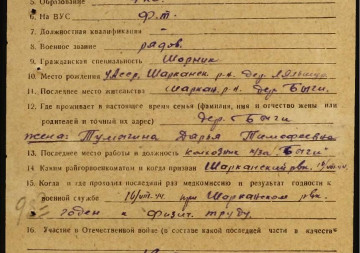 5. Образование
6. На ВУС ф.т.
7. Должностная квалификация –
8. Военное звание рядов.
9. Гражданская специальность Шорник
10. Место рождения УАсср. Шарканск. р-н. дер.
11. Последнее место жительства Шаркан. р.н. дер. Бычи
12. Где проживает в настоящее время семья (фамилия, имя и отчество жены или
родителей и точный их адрес) дер. Бычи
жена: Тулыгина Дарья Тимофеевна
13. Последнее место работы и должность колхозник к/за "Бычи"
14. Каким райгорвоенкоматом и когда призван Шарканский рвк.
15. Когда и где проходил последний раз медкомиссию и результат годности к
военной службе 16/VIII-44. при Шарканском рвк.
годен к физич. труду.
16. Участие в Отечественной войне (в составе какой последней части в качестве